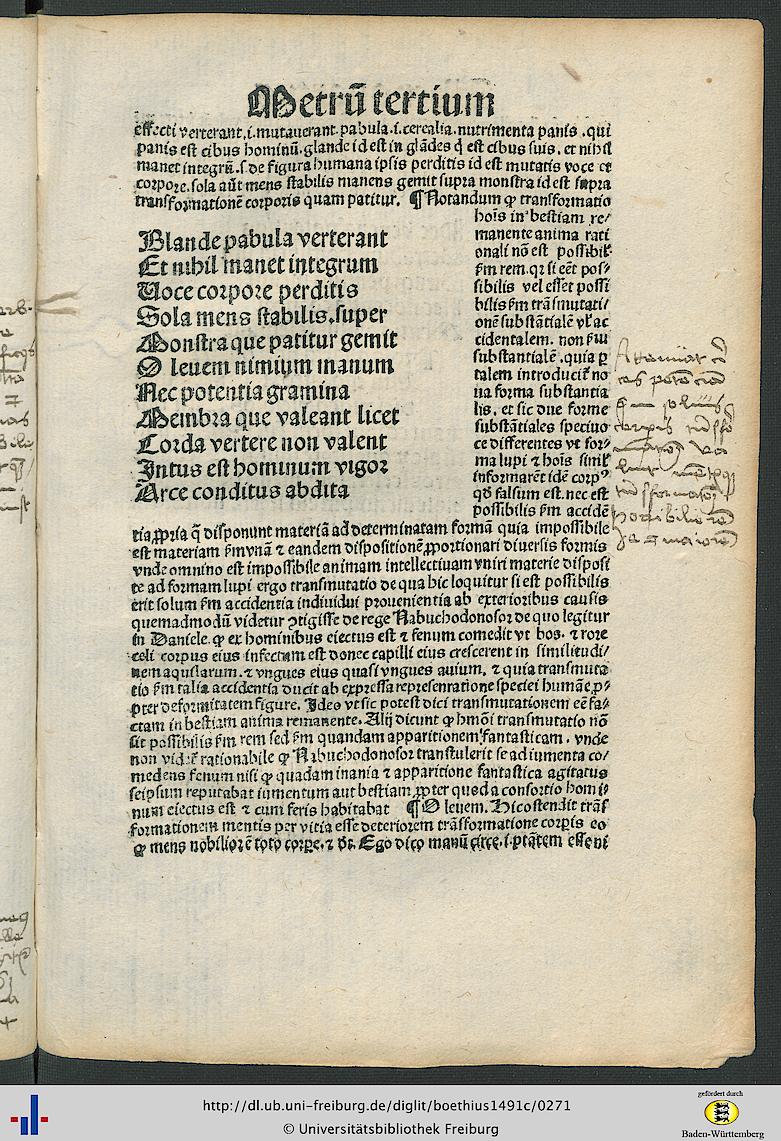 Metrū tertium
effecti verterant .i. mutauerant. pabula .i. cerealia. nutrimenta panis . qui
panis est cibus hominū. glande id est in glādes q̄ est cibus suis. et nihil
manet integrū. s. de figura humana ipsis perditis id est mutatis voce et
corpore. sola aūt mens stabilis manens gemit supra monstra id est supra
transformationē corporis quam patitur. ¶ Notandum ꝙ transformatio
Blande pabula verterant
Et nihil manet integrum
Uoce corpore perditis
Sola mens stabilis. super
Monstra que patitur gemit
O leuem nimium manum
Nec potentia gramina
Membra que valeant licet
Corda vertere non valent
Intus est hominum vigor
Arce conditus abdita
hoīs in bestiam re/
manente anima rati
onali nō est possibil'
ẜm rem. qꝛ si eēt pos/
sibilis vel esset possi
bilis ẜm trāsmutati/
onē substātialē vl' ac
cidentalem. non ẜm
substantialē. quia ꝑ
talem introducit᷑ no
ua forma substantia
lis. et sic due forme
substātiales specifice
ce differentes vt for/
ma lupi ⁊ hoīs simil'
informarēt idē corpꝰ
qd̄ falsum est. nec est
possibilis ẜm accidē
tia ꝓpria q̄ disponunt materiā ad determinatam formā quia impossibile
est materiam ẜm vnā ⁊ eandem dispositionē ꝓportionari diuersis formis
vnde omnino est impossibile animam intellectiuam vniri materie disposi
te ad formam lupi ergo transmutatio de qua hic loquitur si est possibilis
erit solum ẜm accidentia indiuidui prouenientia ab exterioribus causis
quemadmodū videtur ꝯtigisse de rege Nabuchodonosor de quo legitur
in Daniele. ꝙ ex hominibus eiectus est ⁊ fenum comedit vt bos. ⁊ rore
celi corpus eius infectum est donec capilli eius crescerent in similitudi/
nem aquilarum. ⁊ vngues eius quasi vngues auium. ⁊ quia transmuta
tio ẜm talia accidentia ducit ab expressa representatione speciei humāe ꝓ/
pter deformitatem figure. Ideo vt sic potest dici transmutationem eē fa/
ctam in bestiam anima remanente. Alij dicunt ꝙ hmōi transmutatio nō
sit possibilis ẜm rem sed ẜm quandam apparitionem fantasticam . vnde
non videt᷑ rationabile ꝙ Nabuchodonosor transtulerit se ad iumenta co/
medens fenum nisi ꝙ quadam inania ⁊ apparitione fantastica agitatus
seipsum reputabat iumentum aut bestiam ꝓpter quod a consortio homi
num eiectus est ⁊ cum feris habitabat ¶ O leuem. Hic ostendit trās/
formationem mentis per vitia esse deteriorem trāsformatione corꝑis eo
ꝙ mens nobilior ē toto corpore. ⁊ dt̄. Ego dico manū circe. i. ptātem esse ni
http://dl.ub.uni-freiburg.de/diglit/boethius1491c/0271
© Universitätsbibliothek Freiburg
gefördert durch
Baden-Württemberg